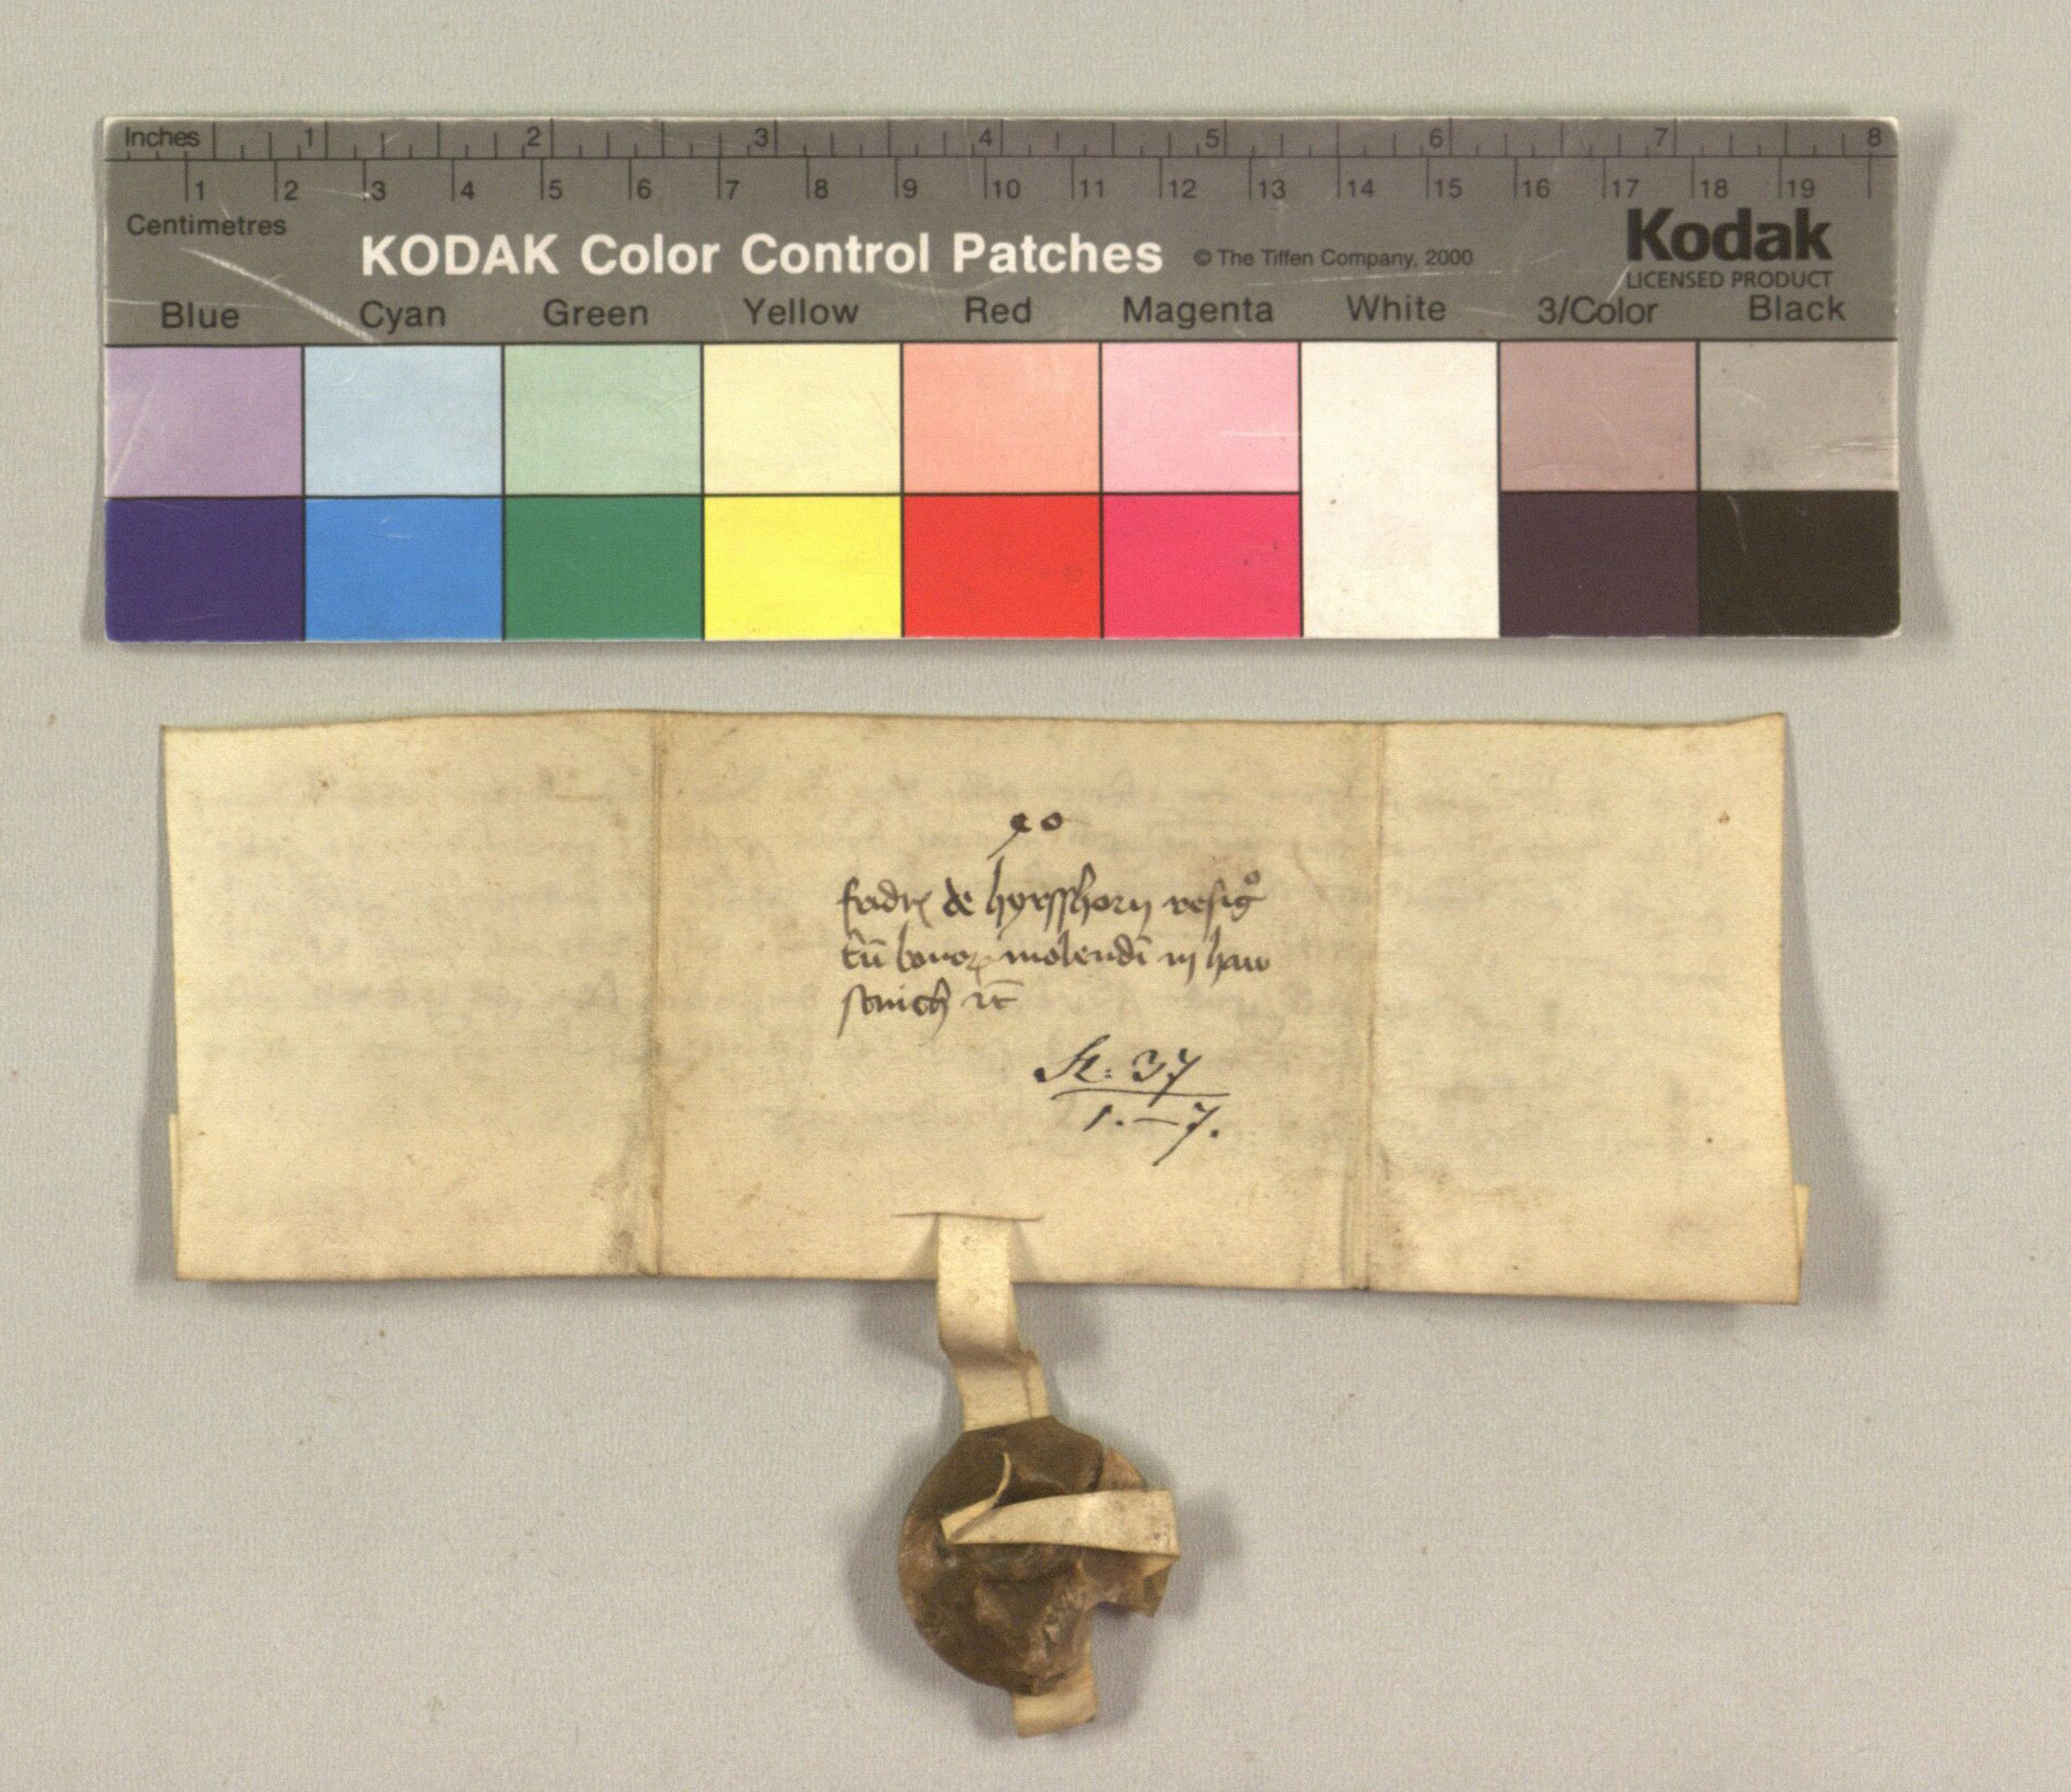 Inches 1 2 3 4 5 6 7 8
1 2 3 4 5 6 7 8 9 10 11 12 13 14 15 16 17 18 19
Centimetres
KODAK Color Control Patches © The Tiffen Company, 2000 Kodak
LICENSED PRODUCT
Blue Cyan Green Yellow Red Magenta White 3/Color Black
de hyrsshorn resigo
bonoꝝ molendī in haw
ꝛc̄
37
1.—7.